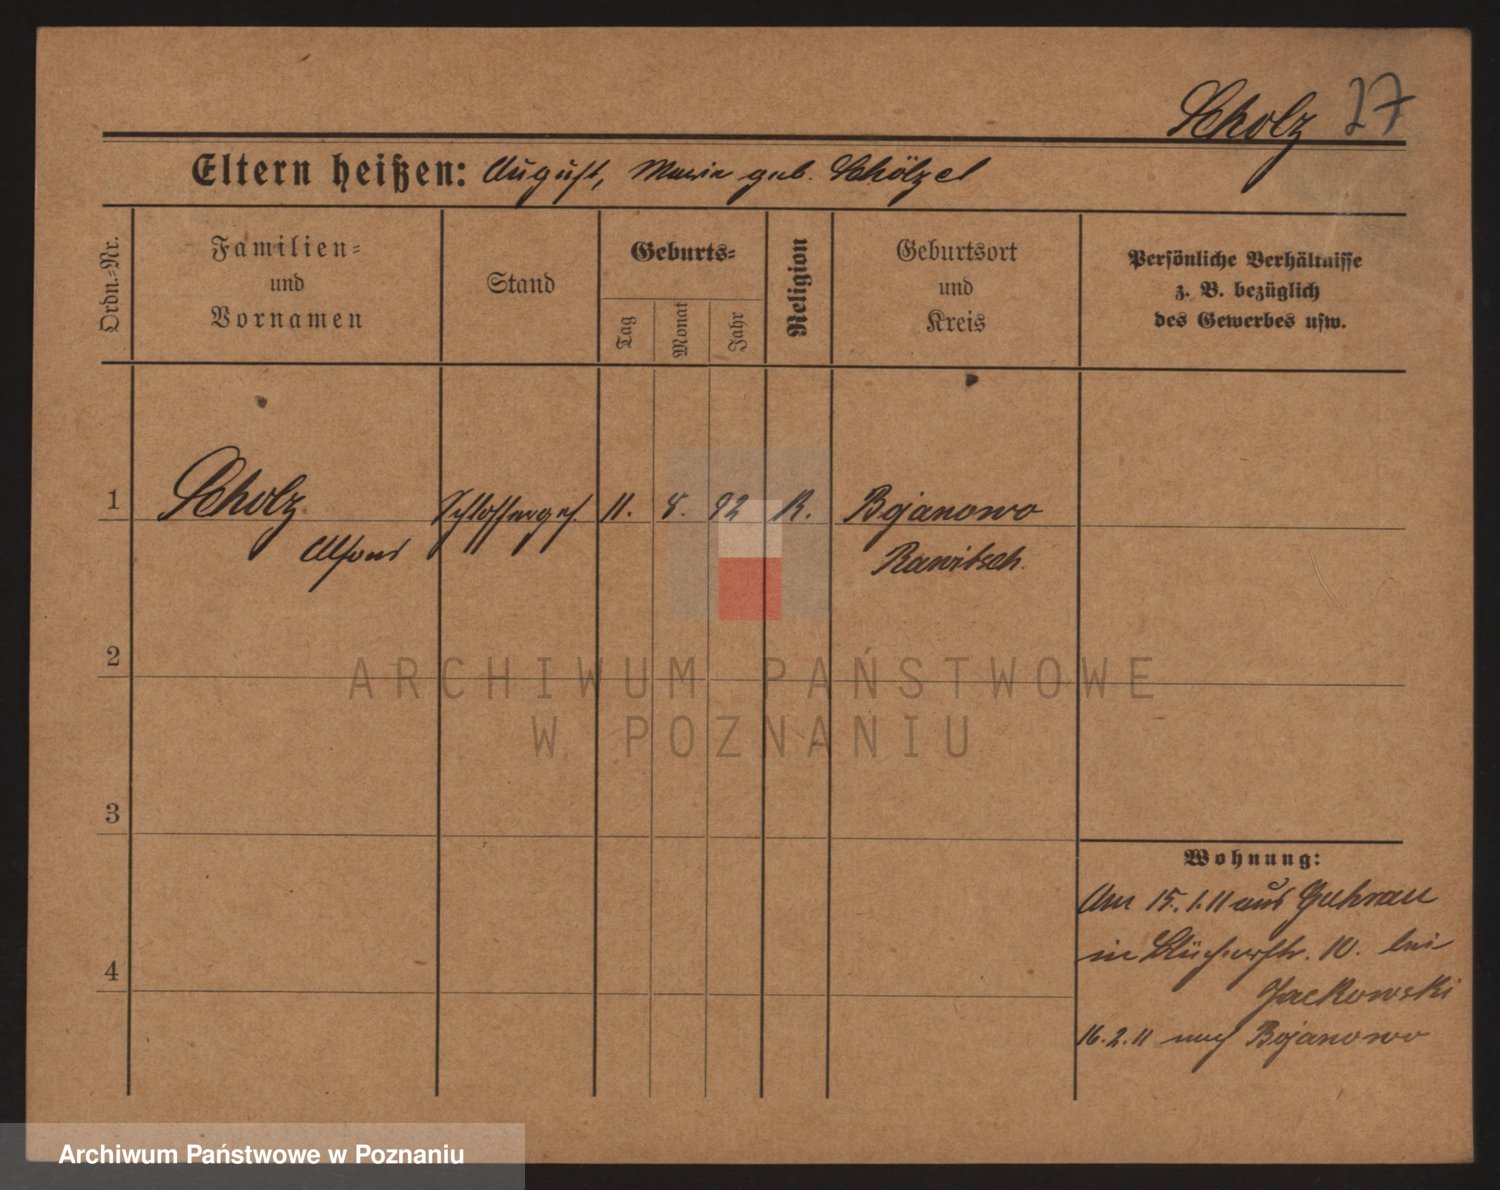 Scholz 27
Eltern heißen: August, Maria geb. Schölzel
Ordn.=Nr.
Familien=
und
Vornamen
Stand
Geburts=
Tag
Monat
Jahr
Religion
Geburtsort
und
Kreis
Persönliche Verhältnisse
z. B. bezüglich
des Gewerbes usw.
1 Scholz Schlosserges. 11. 8. 92 R. Bojanowo
Alfons Rawitsch.
2
3
4
Wohnung:
Am 15.1.11 aus Guhrau
in Blücherstr. 10. bei
Jackowski
16.2.11 nach Bojanowo
ARCHIWUM PAŃSTWOWE
W POZNANIU
Archiwum Państwowe w Poznaniu